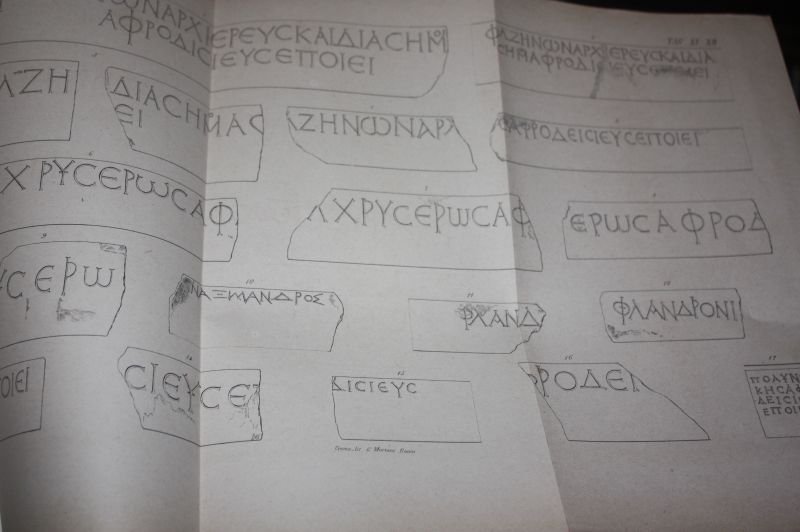 ΤΑV XI XII
ΩΝΑΡΧΙΕΡΕΥϹΚΑΙΔΙΑϹΗΜ
ΑΦΡΟΔΙϹΙΕΥϹΕΠΟΙΕΙ
ΦΛΖΗΝΩΝΑΡΧΙΕΡΕΥϹΚΑΙΔΙΑ
ϹΗΜΑΦΡΟΔΙϹΙΕΥϹΕΠΟΙΕΙ
ΛΖΗ
ΔΙΑϹΗΜΑϹ
ΕΙ
ΖΗΝΩΝΑΡΧ
ΑΦΡΟΔΕΙϹΙΕΥϹΕΠΟΙΕΙ
6
ΧΡΥϹΕΡΩϹΑΦ
7
ΛΧΡΥϹΕΡΩϹΑΦ
ΕΡΩϹΑΦΡΟΔ
9
ΥϹΕΡΩ
10
ΝΑΞΙΜΑΝΔΡΟΣ
11
ΦΛΑΝΔ
12
ΦΛΑΝΔΡΟΝΙ
ΟΙΕΙ
14
ϹΙΕΥϹΕ
15
ΔΙϹΙΕΥϹ
16
ΦΡΟΔΕΙ
17
ΠΟΛΥΝ
ΚΗϹΑΦ
ΔΕΙϹΙ
ΕΠΟΙ